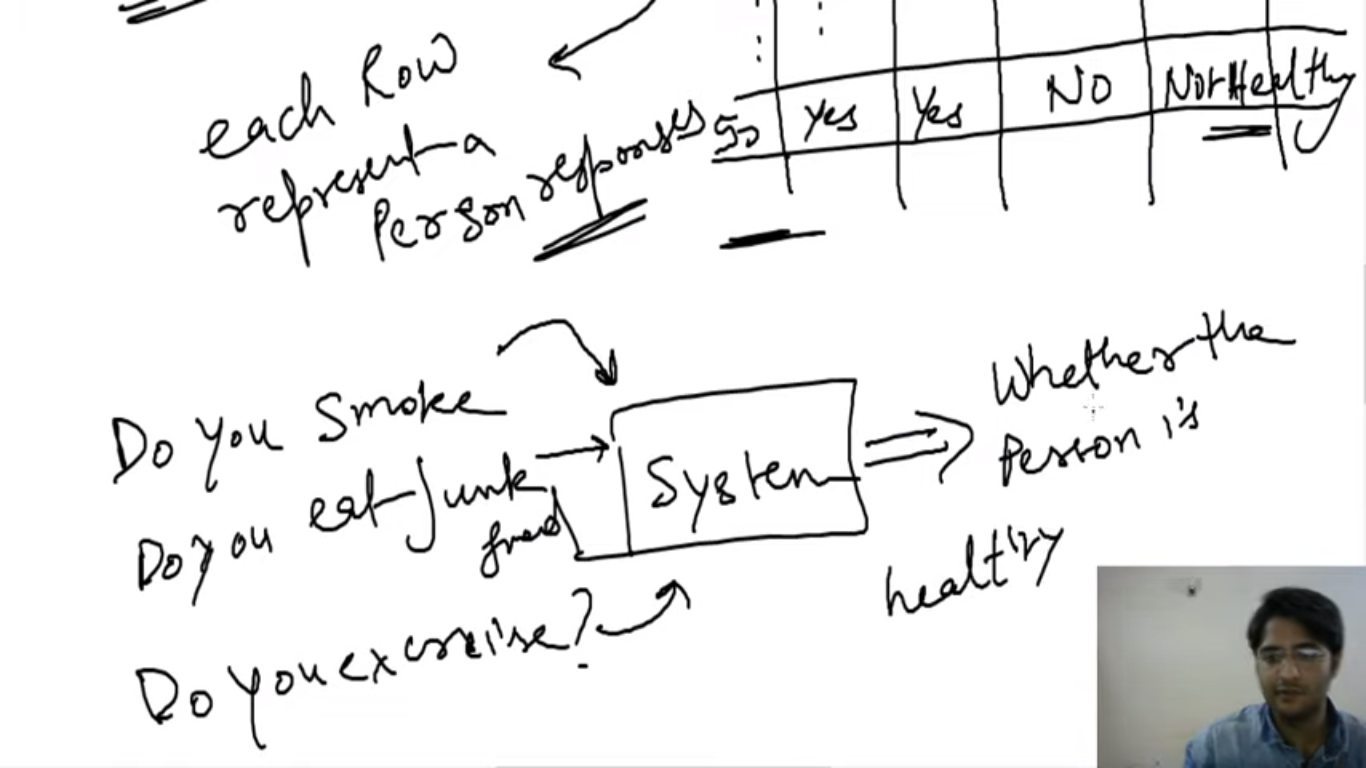 each Row
represent a
Person responses
50 Yes Yes NO Not Healthy
Do you Smoke
Do you eat Junk
food
Do you exercise?
System
Whether the
Person is
healthy